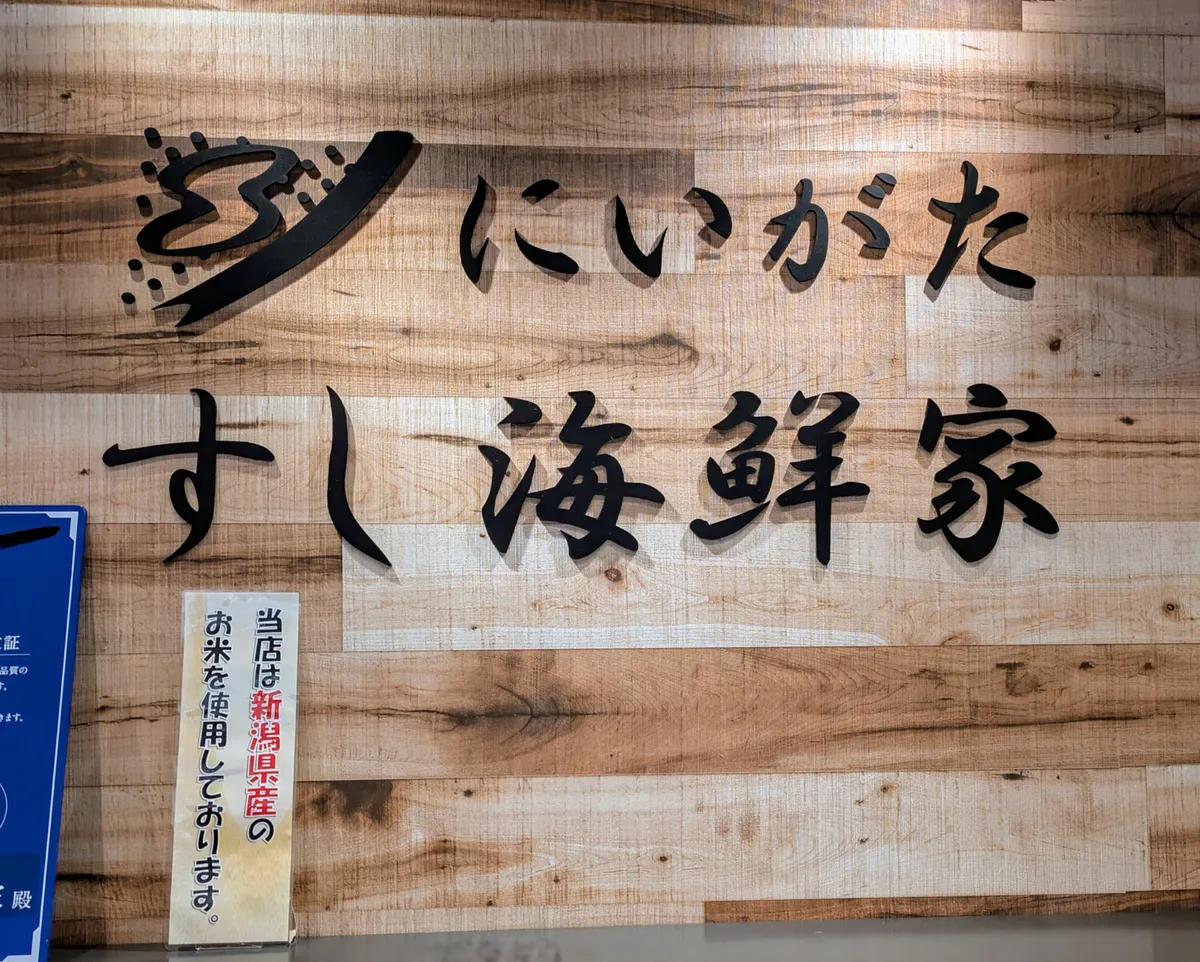 にいがた
すし海鮮家
当店は新潟県産の
お米を使用しております。
証
品質の
す。
きます。
殿